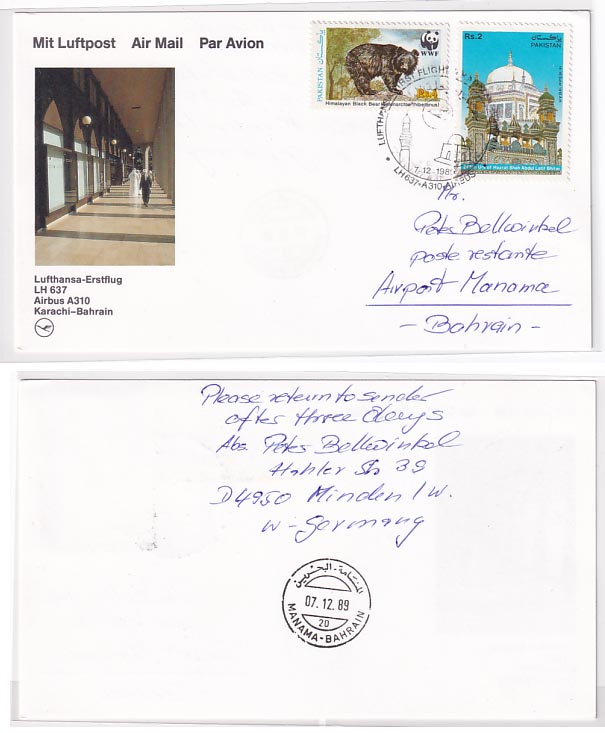 Mit Luftpost Air Mail Par Avion
PAKISTAN پاکستان
WWF
Himalayan Black Bear
Rs.2 پاکستان
PAKISTAN
Hazrat Shah Abdul Latif Bhitai
LUFTHANSA FIRST FLIGHT
7-12-1989
LH 637-A310-AIRBUS
Hr.
Peter Bellwinkel
poste restante
Airport Manama
- Bahrain -
Lufthansa-Erstflug
LH 637
Airbus A310
Karachi–Bahrain
Please return to sender
after three days
Abs. Peter Bellwinkel
Hahler Str 39
D4950 Minden/W.
W-Germany
المنامة - البحرين
07.12.89
20
MANAMA-BAHRAIN